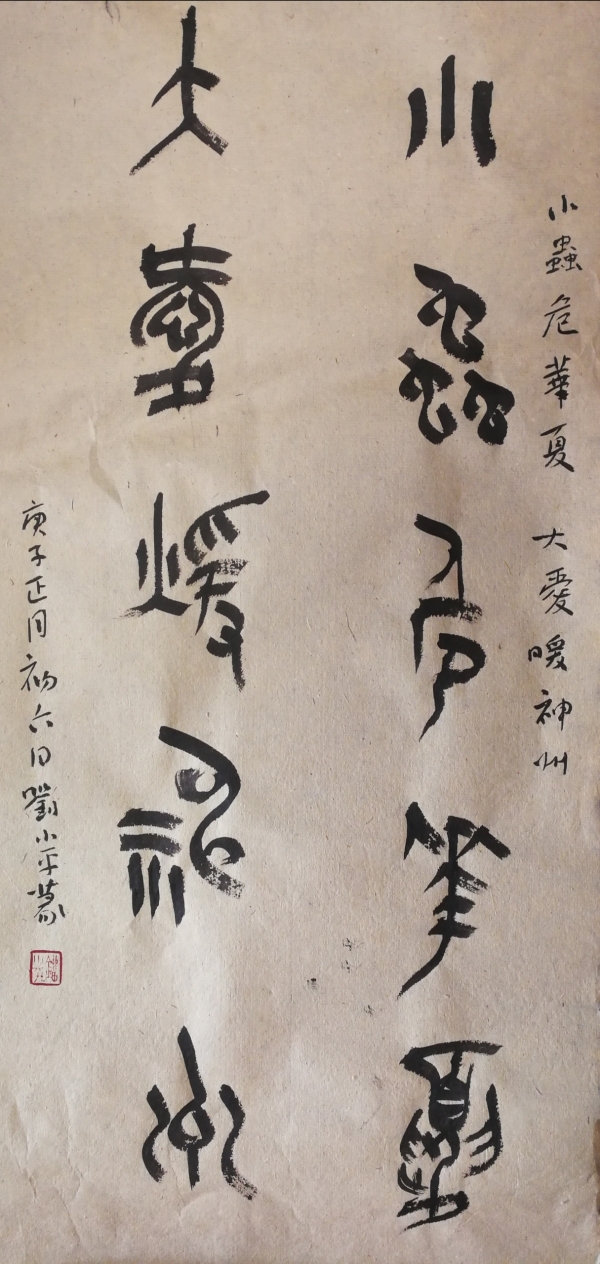 小蟲危華夏 大愛暖神州
小蟲危華夏
大愛暖神州
庚子正月初六日劉小平篆